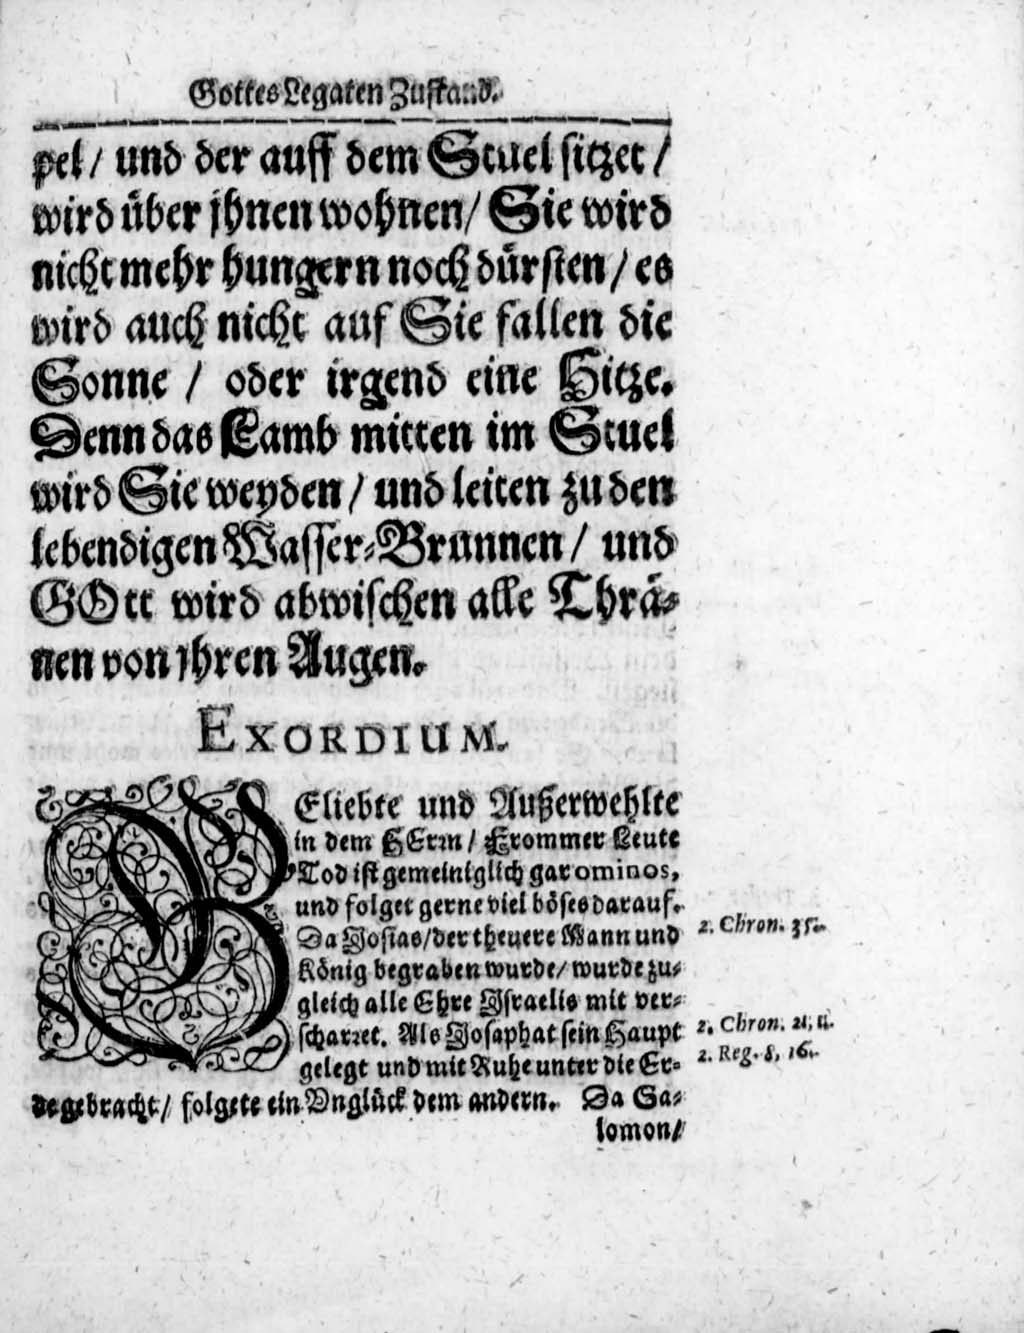 Gottes Legaten Zustand.
pel / und der auff dem Stuel sitzet /
wird über jhnen wohnen / Sie wird
nicht mehr hungern noch dürsten / es
wird auch nicht auf Sie fallen die
Sonne / oder irgend eine Hitze.
Denn das Lamb mitten im Stuel
wird Sie weyden / und leiten zu den
lebendigen Wasser-Brunnen / und
GOtt wird abwischen alle Thrä-
nen von jhren Augen.
EXORDIUM.
BEliebte und Außerwehlte
in dem HErrn / Frommer Leute
Tod ist gemeiniglich gar ominos,
und folget gerne viel böses darauf.
Da Josias / der theuere Mann und
König begraben wurde / wurde zu-
gleich alle Ehre Israelis mit ver-
scharret. Als Josaphat sein Haupt
gelegt und mit Ruhe unter die Er-
de gebracht / folgete ein Vnglück dem andern. Da Sa-
lomon /
2. Chron. 35.
2. Chron. 21, 11.
2. Reg. 8, 16.